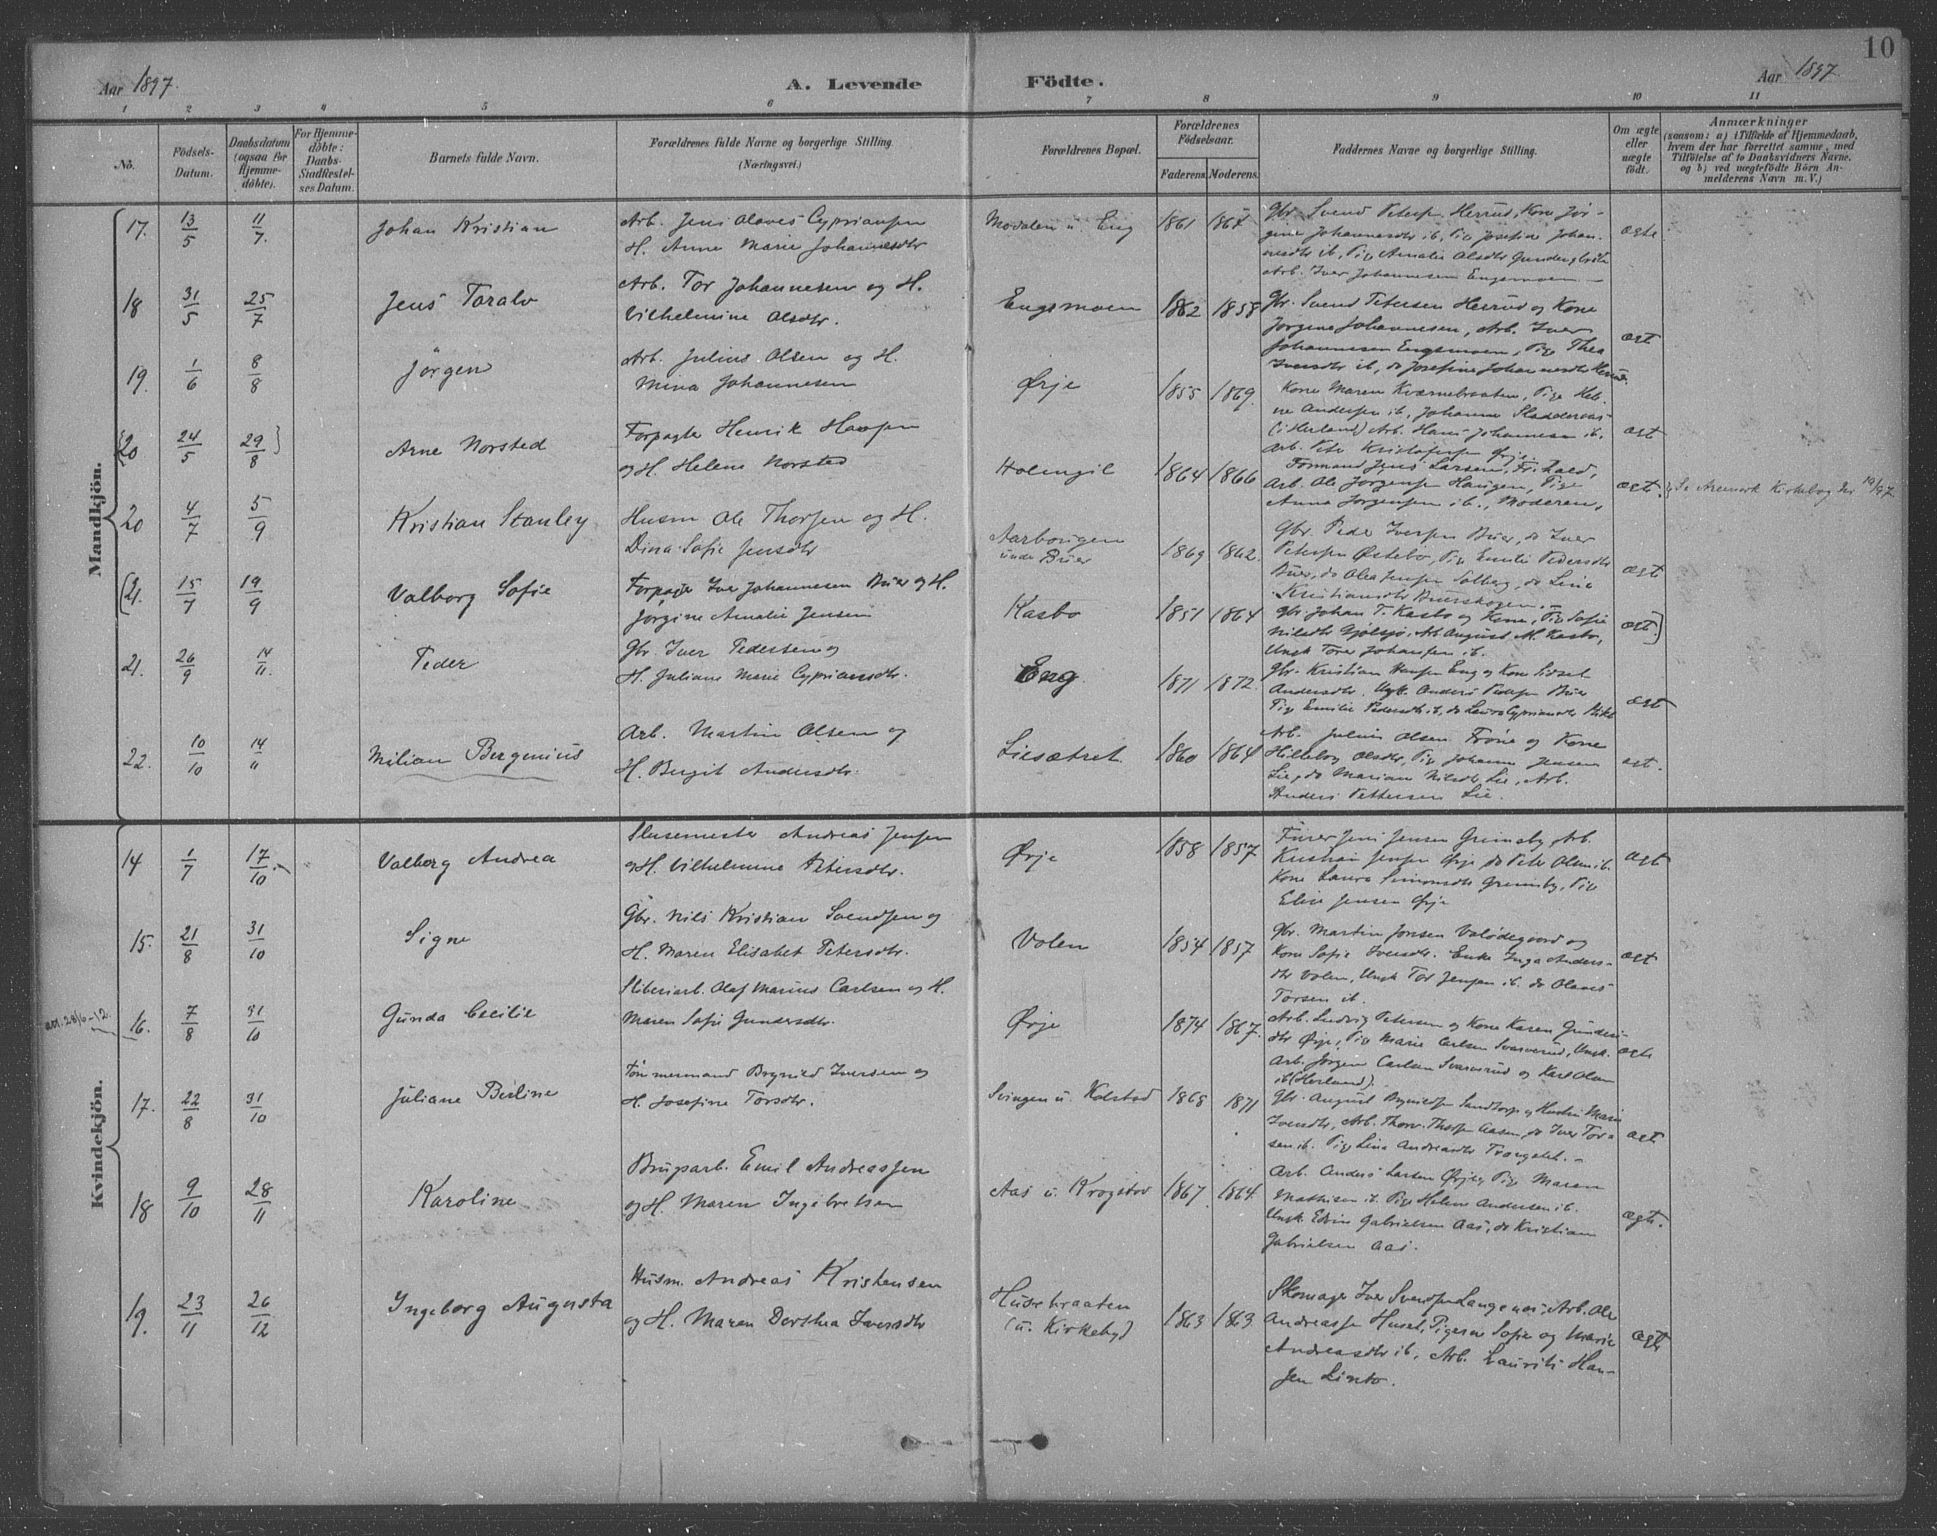 10
Aar 1897. A. Levende Födte. Aar 1897
1 2 3 4 5 6 7 8 9 10 11
No. Födsels-Datum. Daabsdatum (ogsaa for Hjemmedöbte). For Hjemmedöbte: Daabs-Stadfæstelses Datum. Barnets fulde Navn. Forældrenes fulde Navne og borgerlige Stilling. (Næringsvei.) Forældrenes Bopæl. Forældrenes Födselsaar. Faderens. Moderens. Faddernes Navne og borgerlige Stilling. Om ægte eller uægte födt. Anmærkninger (saasom: a) i Tilfælde af Hjemmedaab, hvem der har forrettet samme, med Tilföielse af to Daabsvidners Navne, og b) ved uægtefödte Börn Anmelderens Navn m. V.)
Mandkjön.
17. 13/5 11/7. Johan Kristian
Arb. Jens Olaves Cypriansen
H. Anne Marie Johannesdtr
Modalen u. Eng 1861 1864
Gbr. Svend Petersen Herrud, Kone Jör-
gine Johannesdtr ib, Pige Josefine Johan-
nesdtr ib, Pige Amalie Olsdtr
Arb. Iver Johannesen Engsmoen
ægte
18 31/5 25/7 Jens Taralv
Arb. Tor Johannesen og H.
Vilhelmine Olsdtr.
Engsmoen 1862 1858
Gbr. Svend Petersen Herrud og Kone
Jörgine Johannesen, Arb. Iver
Johannesen Engsmoen, Pige Thea
Iversdtr ib, do Josefine Johannesdtr Herrud.
ægt
19. 1/6 8/8 Jörgen
Arb. Julius Olsen og H.
Mina Johannesen
Ørje 1855 1869.
Kone Maren Kværnebraaten, Pige Hel-
ne Andersen ib, Johanne
(i Herland) Arb. Hans Johannesen ib,
Arb. Peter Kristofersen Ørje
ægt
(20 24/5 29/8 } Arne Norsted
Forpagter Henrik Hansen
og H. Helene Norsted
Holmgil 1864 1866
Formand Jens Larsen, Fr.hald,
Arb. Ole Jörgensen Haugen, Pige
Anna Jörgensen ib., Moderen,
ægt. Se Aremark Kirkebog No 19/97
20 4/7 5/9 Kristian Stanley
Husm Ole Thorsen og H.
Dina Sofie Jensdtr
Aarbougen
under Buer 1869 1862.
Gbr. Peder Iversen Buer, do Iver
Petersen Østebö, Pige Emilie Pedersdtr
Buer, do Olea Jensen Solberg, do Lina
Kristiansdtr Buerskogen.
ægt
(21. 15/7 19/9 Valborg Sofie
Forpagter Iver Johannesen Buer og H.
Jörgine Amalie Jensen
Kasbo 1851 1864
Gbr. Johan T. Kasbo og Kone, Pige Sofie
Nilsdtr Gjölsjö, Arb. August M. Kasbo,
Ungk Tore Johansen ib.
ægt.)
21. 26/9 14/11. Peder
Gbr. Iver Pedersen og
H. Juliane Marie Cypriansdtr.
Eng 1871 1872.
Gbr. Kristian Hansen Eng og Kone Lisset
Andersdtr, Ungk. Anders Pedersen Buer
Pige Emilie Pedersdtr ib, do Laura Cypriansdtr
ægt
22. 10/10 14/11 Milian Bergenius
Arb. Martin Olsen og
H. Bergit Andersdtr.
Liesætret 1860 1864
Arb. Julius Olsen Tröne og Kone
Hilleborg Olsdtr, Pige Johanne Jensen
Lie, do Mariane Nilsdtr, Lie, Arb.
Anders Pettersen Lie.
ægt.
Kvindekjön.
14 1/7 17/10. Valborg Andrea
Slusemester Andreas Jensen
og H. Vilhelmine Petersdtr.
Ørje 1858 1857
Furer Jens Jensen Grimsby, Arb.
Kristian Jensen Ørje do Peter Olsen ib.
Kone Laura Simonsdtr Grimsby, Pige
Elise Jensen Ørje
ægt
15. 21/8 31/10 Signe
Gbr. Nils Kristian Svendsen og
H. Maren Elisabet Petersdtr.
Volen 1854 1857
Gbr. Martin Jensen Valödegaard og
Kone Sofie Iversdtr. Enke Inga Anders-
dtr Volen, Ungk Tor Jensen ib. do Olaves
Torsen ib.
ægt
att. 28/6-12.
16. 7/8 31/10 Gunda Cecilie
Sliberiarb. Olaf Marius Carlsen og H.
Maren Sofie Gundersdtr.
Ørje 1874 1867.
Arb. Ludvig Petersen og Kone Karen Gunders-
dtr Ørje, Pige Marie Carlsen Svarverud, Ungk.
Arb. Jörgen Carlsen Svarverud og Karl Olsen
ib (Herland).
ægte
17. 22/8 31/10 Juliane Berline
Tömmermand Brynild Iversen og
H. Josefine Torsdtr.
Svingen u. Kolstad 1868 1871
Gbr. August Brynildsen Sandtorp og Hustru Marie
Iversdtr, Arb. Thorv. Thorsen Aasen, do Iver Tor-
sen ib. Pige Lina Andreasdtr
ægt
18 9/10 28/11 Karoline
Brugsarb. Emil Andreassen
og H. Maren Ingebretsen
Aas u. Krogstad 1867 1864.
Arb. Anders Larsen Ørje, Pige Maren
Mathisen ib. Pige Helene Andersen ib.
Ungk Edvin Gabrielsen Aas, do Kristian
Gabrielsen Aas.
ægte.
19. 23/11 26/12 Ingeborg Augusta
Husm. Andreas Kristensen
og H. Maren Dorthea Iversdtr
Husebraaten
(u. Kirkeby) 1863 1863
Skomager Iver Svendsen Langenæs, Arb. Ole
Andreassen Huset, Pigerne Sofie og Marie
Andreasdtr ib, Arb. Laurits Han-
sen Linto.
ægte